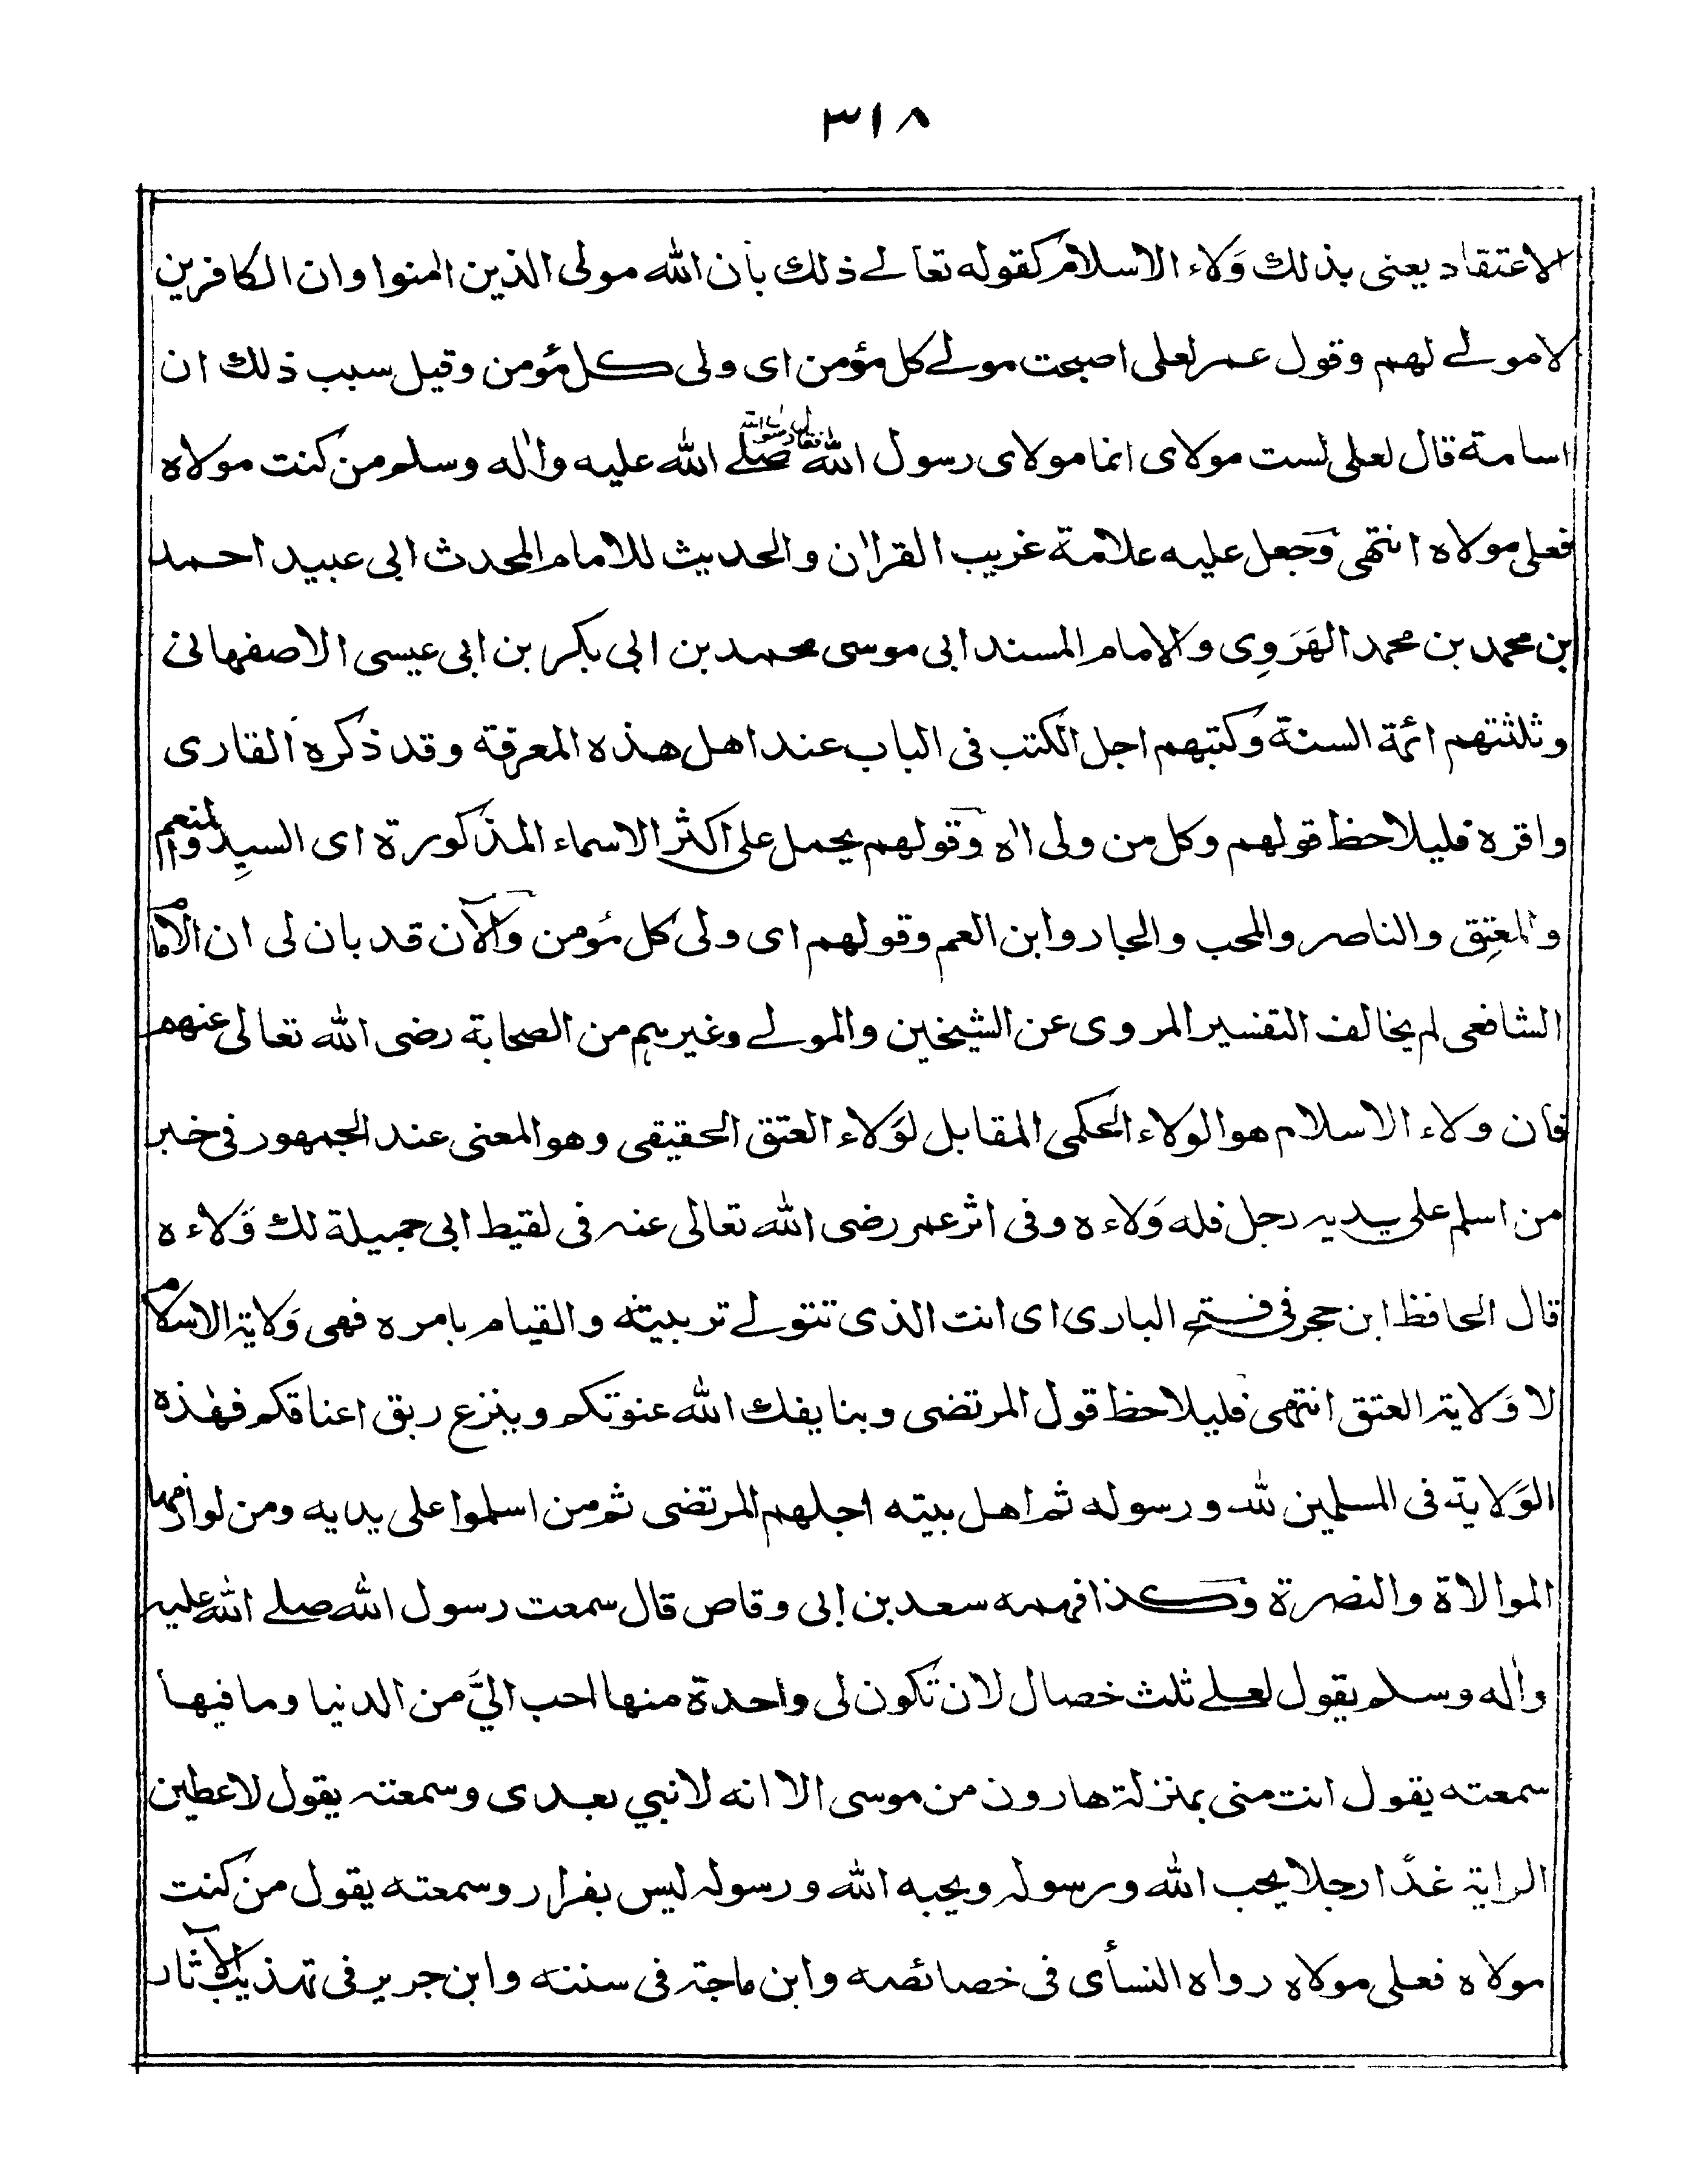 ٣١٨
الاعتقاد يعنى بذلك وَلاء الاسلام كقوله تعالے ذلك بان الله مولى الذين اٰمنوا وان الكافرين
لا مولے لهم وقول عمر لعلى اصبحت مولے كل مؤمن اى ولى كل مؤمن وقيل سبب ذلك ان
اسامة قال لعلى لست مولاى انما مولاى رسول الله فقال رسول الله صلے الله عليه واٰله وسلم من كنت مولاه
فعلى مولاه انتهى وجعل عليه علامة غريب القراٰن والحديث للامام المحدث ابى عبيد احمد
بن محمد بن محمد الهَرَوِى والامام المسند ابى موسى محمد بن ابى بكر بن ابى عيسى الاصفهانى
وثلثتهم ائمة السنة وكتبهم اجل الكتب فى الباب عند اهل هذه المعرفة وقد ذكره القارى
واقره فليلاحظ قولهم وكل من ولى اٰه وقولهم يحمل على اكثر الاسماء المذكورة اى السيد والمنعم
والمعتِق والناصر والمحب والجار وابن العم وقولهم اى ولى كل مؤمن والآن قد بان لى ان الامام
الشافعى لم يخالف التفسير المروى عن الشيخين والمولے وغيرهم من الصحابة رضى الله تعالى عنهم
فان ولاء الاسلام هو الولاء الحكمى المقابل لوَلاء العتق الحقيقى وهو المعنى عند الجمهور فى خبر
من اسلم على يديه رجل فله وَلاءه وفى اثر عمر رضى الله تعالى عنه فى لقيط ابى جميلة لك وَلاءه
قال الحافظ ابن حجر فى فتح البارى اى انت الذى تتولے تربيته والقيام بامره فهى وَلاية الاسلام
لا وَلاية العتق انتهى فليلاحظ قول المرتضى وبنا يفك الله عنوتكم وينزع ربق اعناقكم فهٰذه
الوَلاية فى المسلمين لله ورسوله ثم اهل بيته اجلهم المرتضى ثم من اسلموا على يديه ومن لوازمها
الموالاة والنصرة وكذا فهمه سعد بن ابى وقاص قال سمعت رسول الله صلے الله عليه
واٰله وسلم يقول لعلے ثلث خصال لان تكون لى واحدة منها احب اليَّ من الدنيا وما فيها
سمعته يقول انت منى بمنزلة هارون من موسى الا انه لا نبي بعدى وسمعته يقول لاعطين
الراية غدًا رجلا يحب الله ورسوله ويحبه الله ورسوله ليس بفرار وسمعته يقول من كنت
مولاه فعلى مولاه رواه النسأى فى خصائصه وابن ماجة فى سننه وابن جرير فى تهذيب الآثار